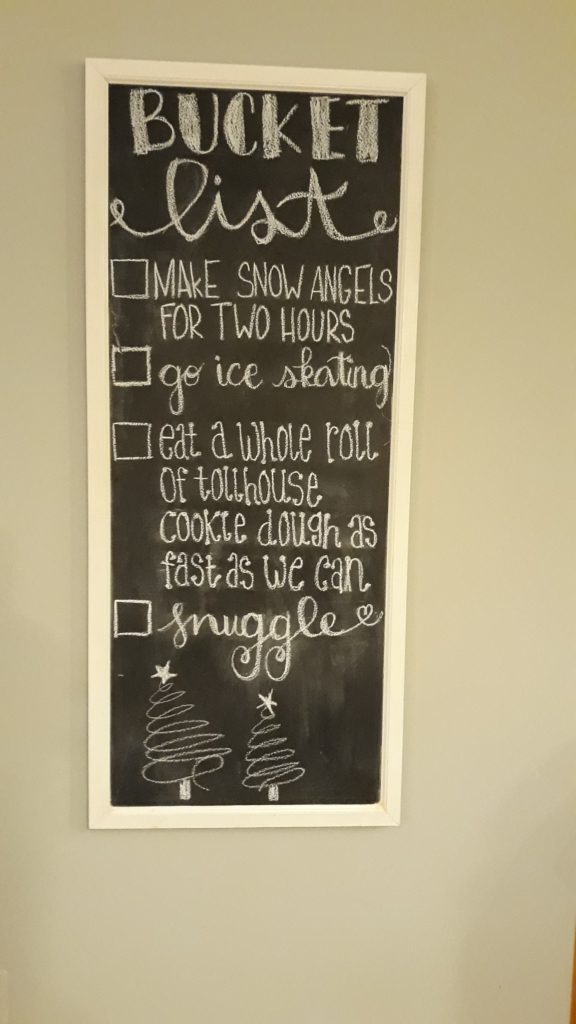 BUCKET
list
MAKE SNOW ANGELS
FOR TWO HOURS
go ice skating
eat a whole roll
of tollhouse
cookie dough as
fast as we can
snuggle